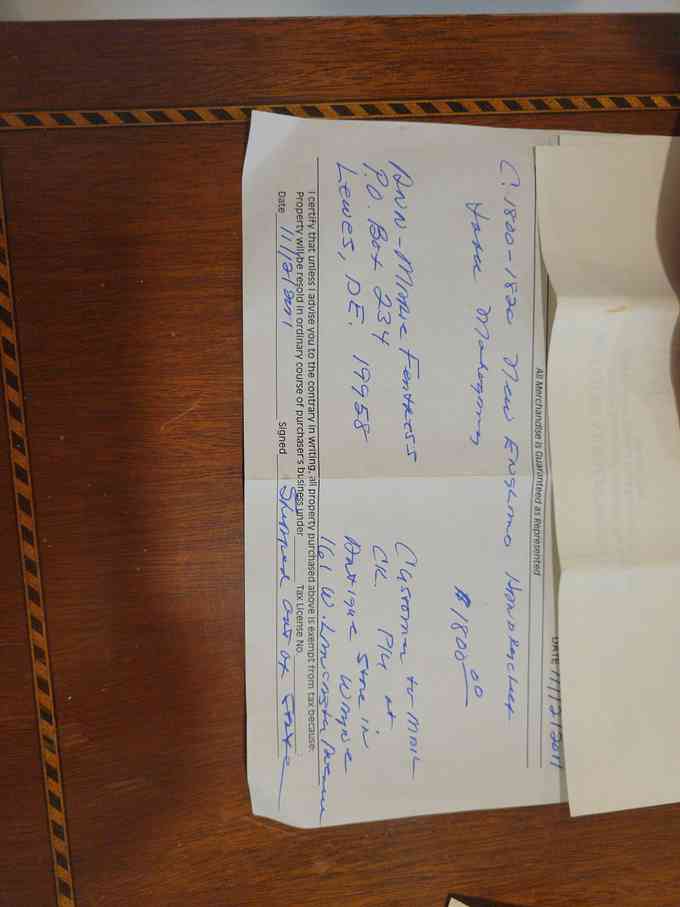 DATE 11/12/2011
All Merchandise is Guaranteed as Represented
C. 1800-1820 New England
Mahogany
$1800.00
Ann-Marie Fentress
P.O. Box 234
Lewes, DE. 19958
Customer to mail
CK. PU at
Antique Store in
Wayne
161 W. Lancaster Avenue
I certify that unless I advise you to the contrary in writing, all property purchased above is exempt from tax because:
Property will be resold in ordinary course of purchaser's business under Tax License No.
Date 11/12/2011 Signed Shipped out of State